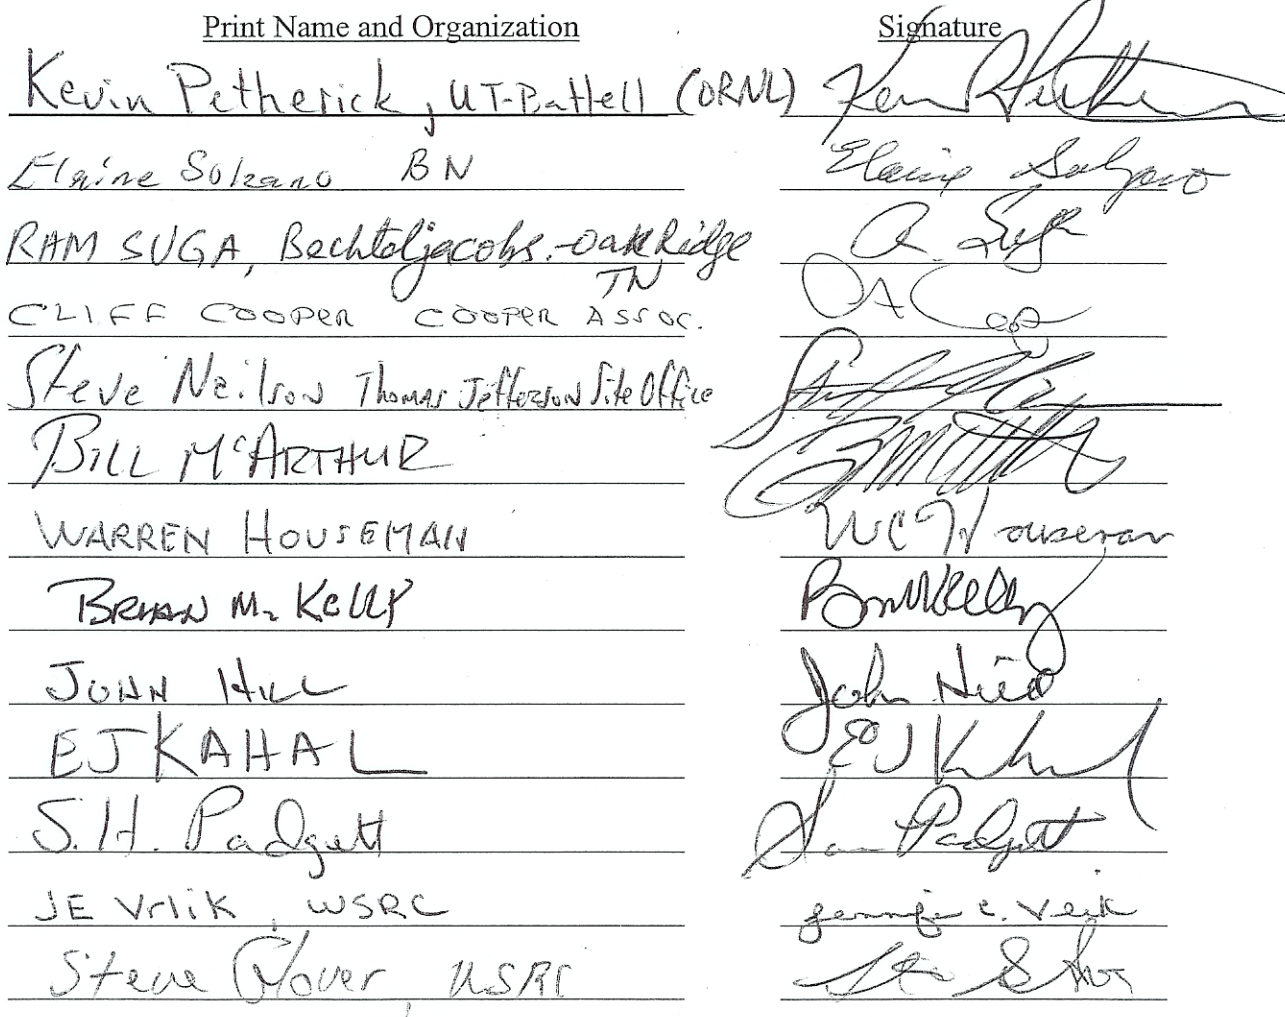 Print Name and Organization Signature
Kevin Petherick, UT-Battell (ORNL)
Elaine Solzano BN Elaine Solzano
RAM SUGA, Bechteljacobs.-Oak Ridge
TN
CLIFF COOPER COOPER ASSOC.
Steve Neilson Thomas Jefferson Site Office
BILL McARTHUR
WARREN HOUSEMAN WC Houseman
BRYAN M. KELLY BM Kelly
JOHN HILL John Hill
EJ KAHAL EJ Kahal
S.H. Padgett Padgett
JE Vrlik, WSRC
Steve Glover, WSRC